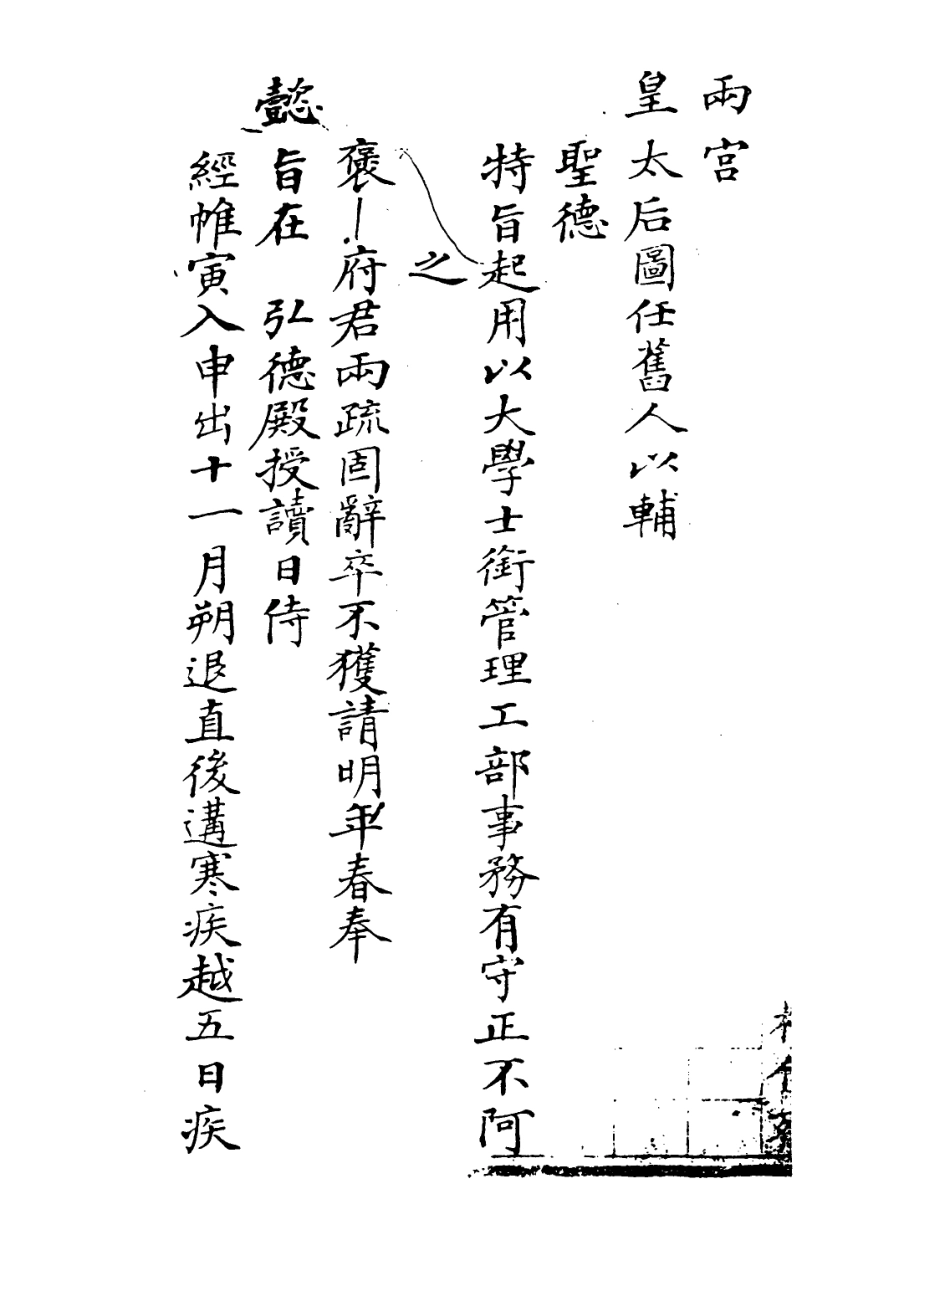 兩宮
皇太后圖任舊人以輔
聖德
特旨起用以大學士銜管理工部事務有守正不阿
之
褒府君兩疏固辭卒不獲請明年春奉
懿旨在 弘德殿授讀日侍
經帷寅入申出十一月朔退直後遘寒疾越五日疾